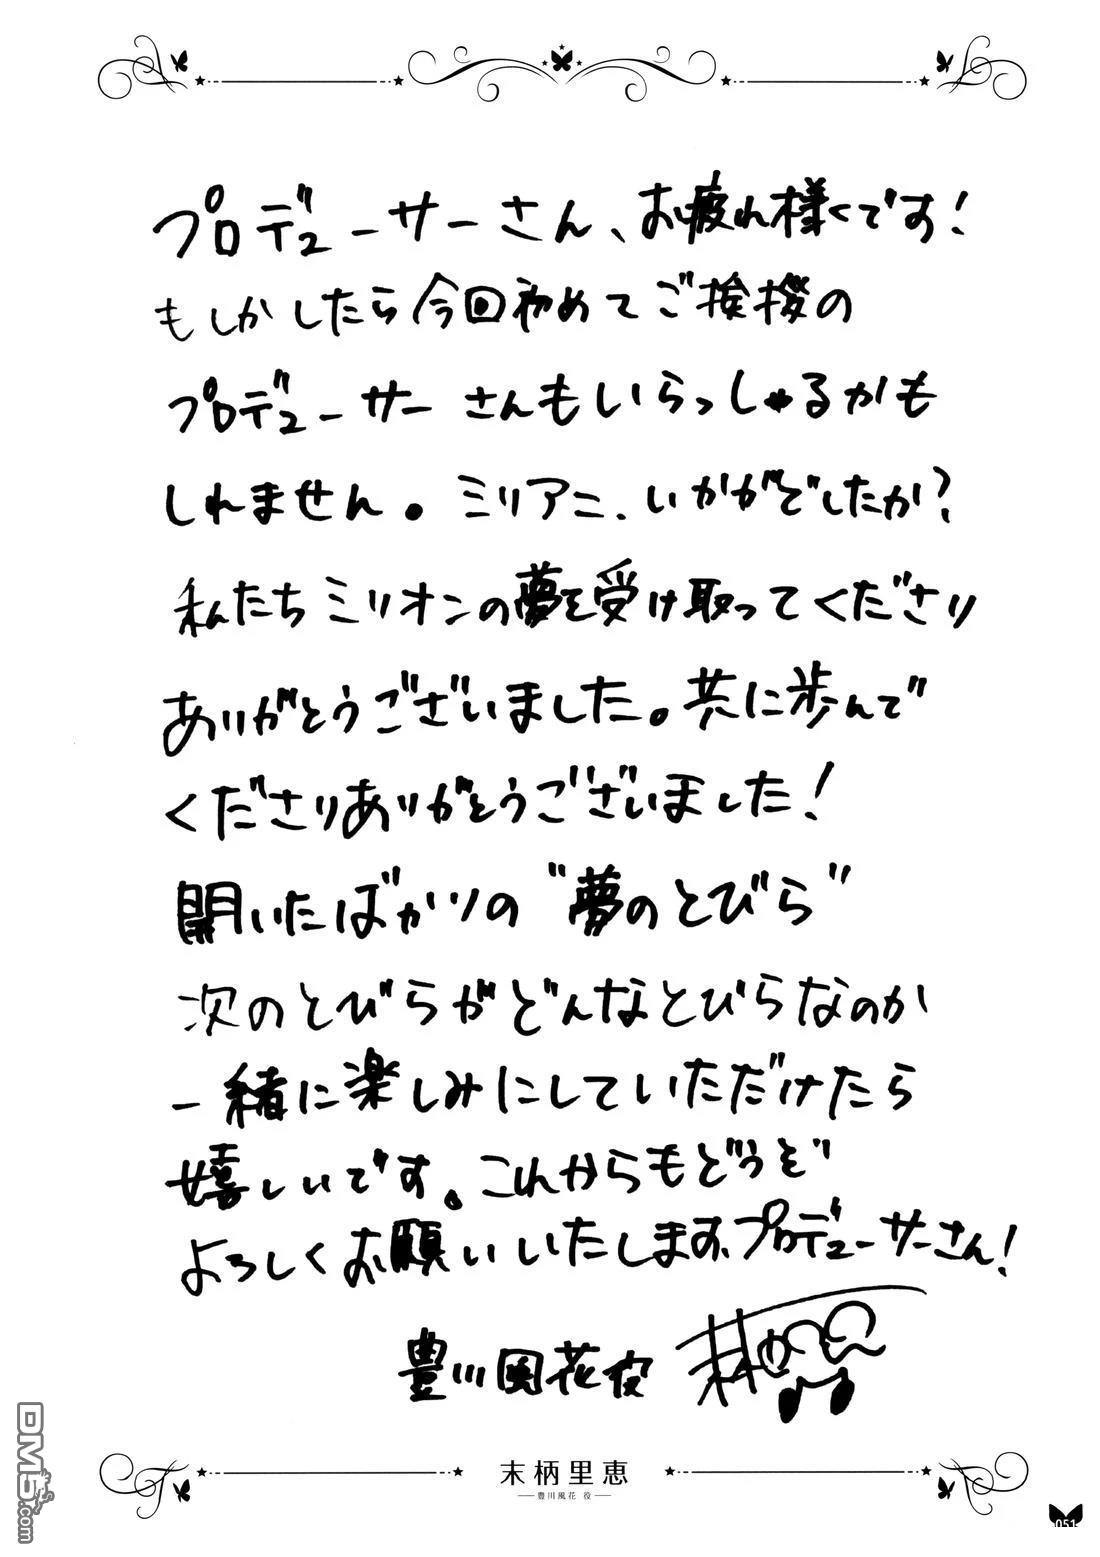 プロデューサーさん、お疲れ様です!
もしかしたら今回初めてご挨拶の
プロデューサーさんもいらっしゃるかも
しれません。ミリアニ、いかがでしたか?
私たちミリオンの夢を受け取ってくださり
ありがとうございました。共に歩んで
くださりありがとうございました!
開いたばかりの"夢のとびら"
次のとびらがどんなとびらなのか
一緒に楽しみにしていただけたら
嬉しいです。これからもどうぞ
よろしくお願いいたします、プロデューサーさん!
豊川風花役
末柄里恵
豊川風花 役
051
DM5.com